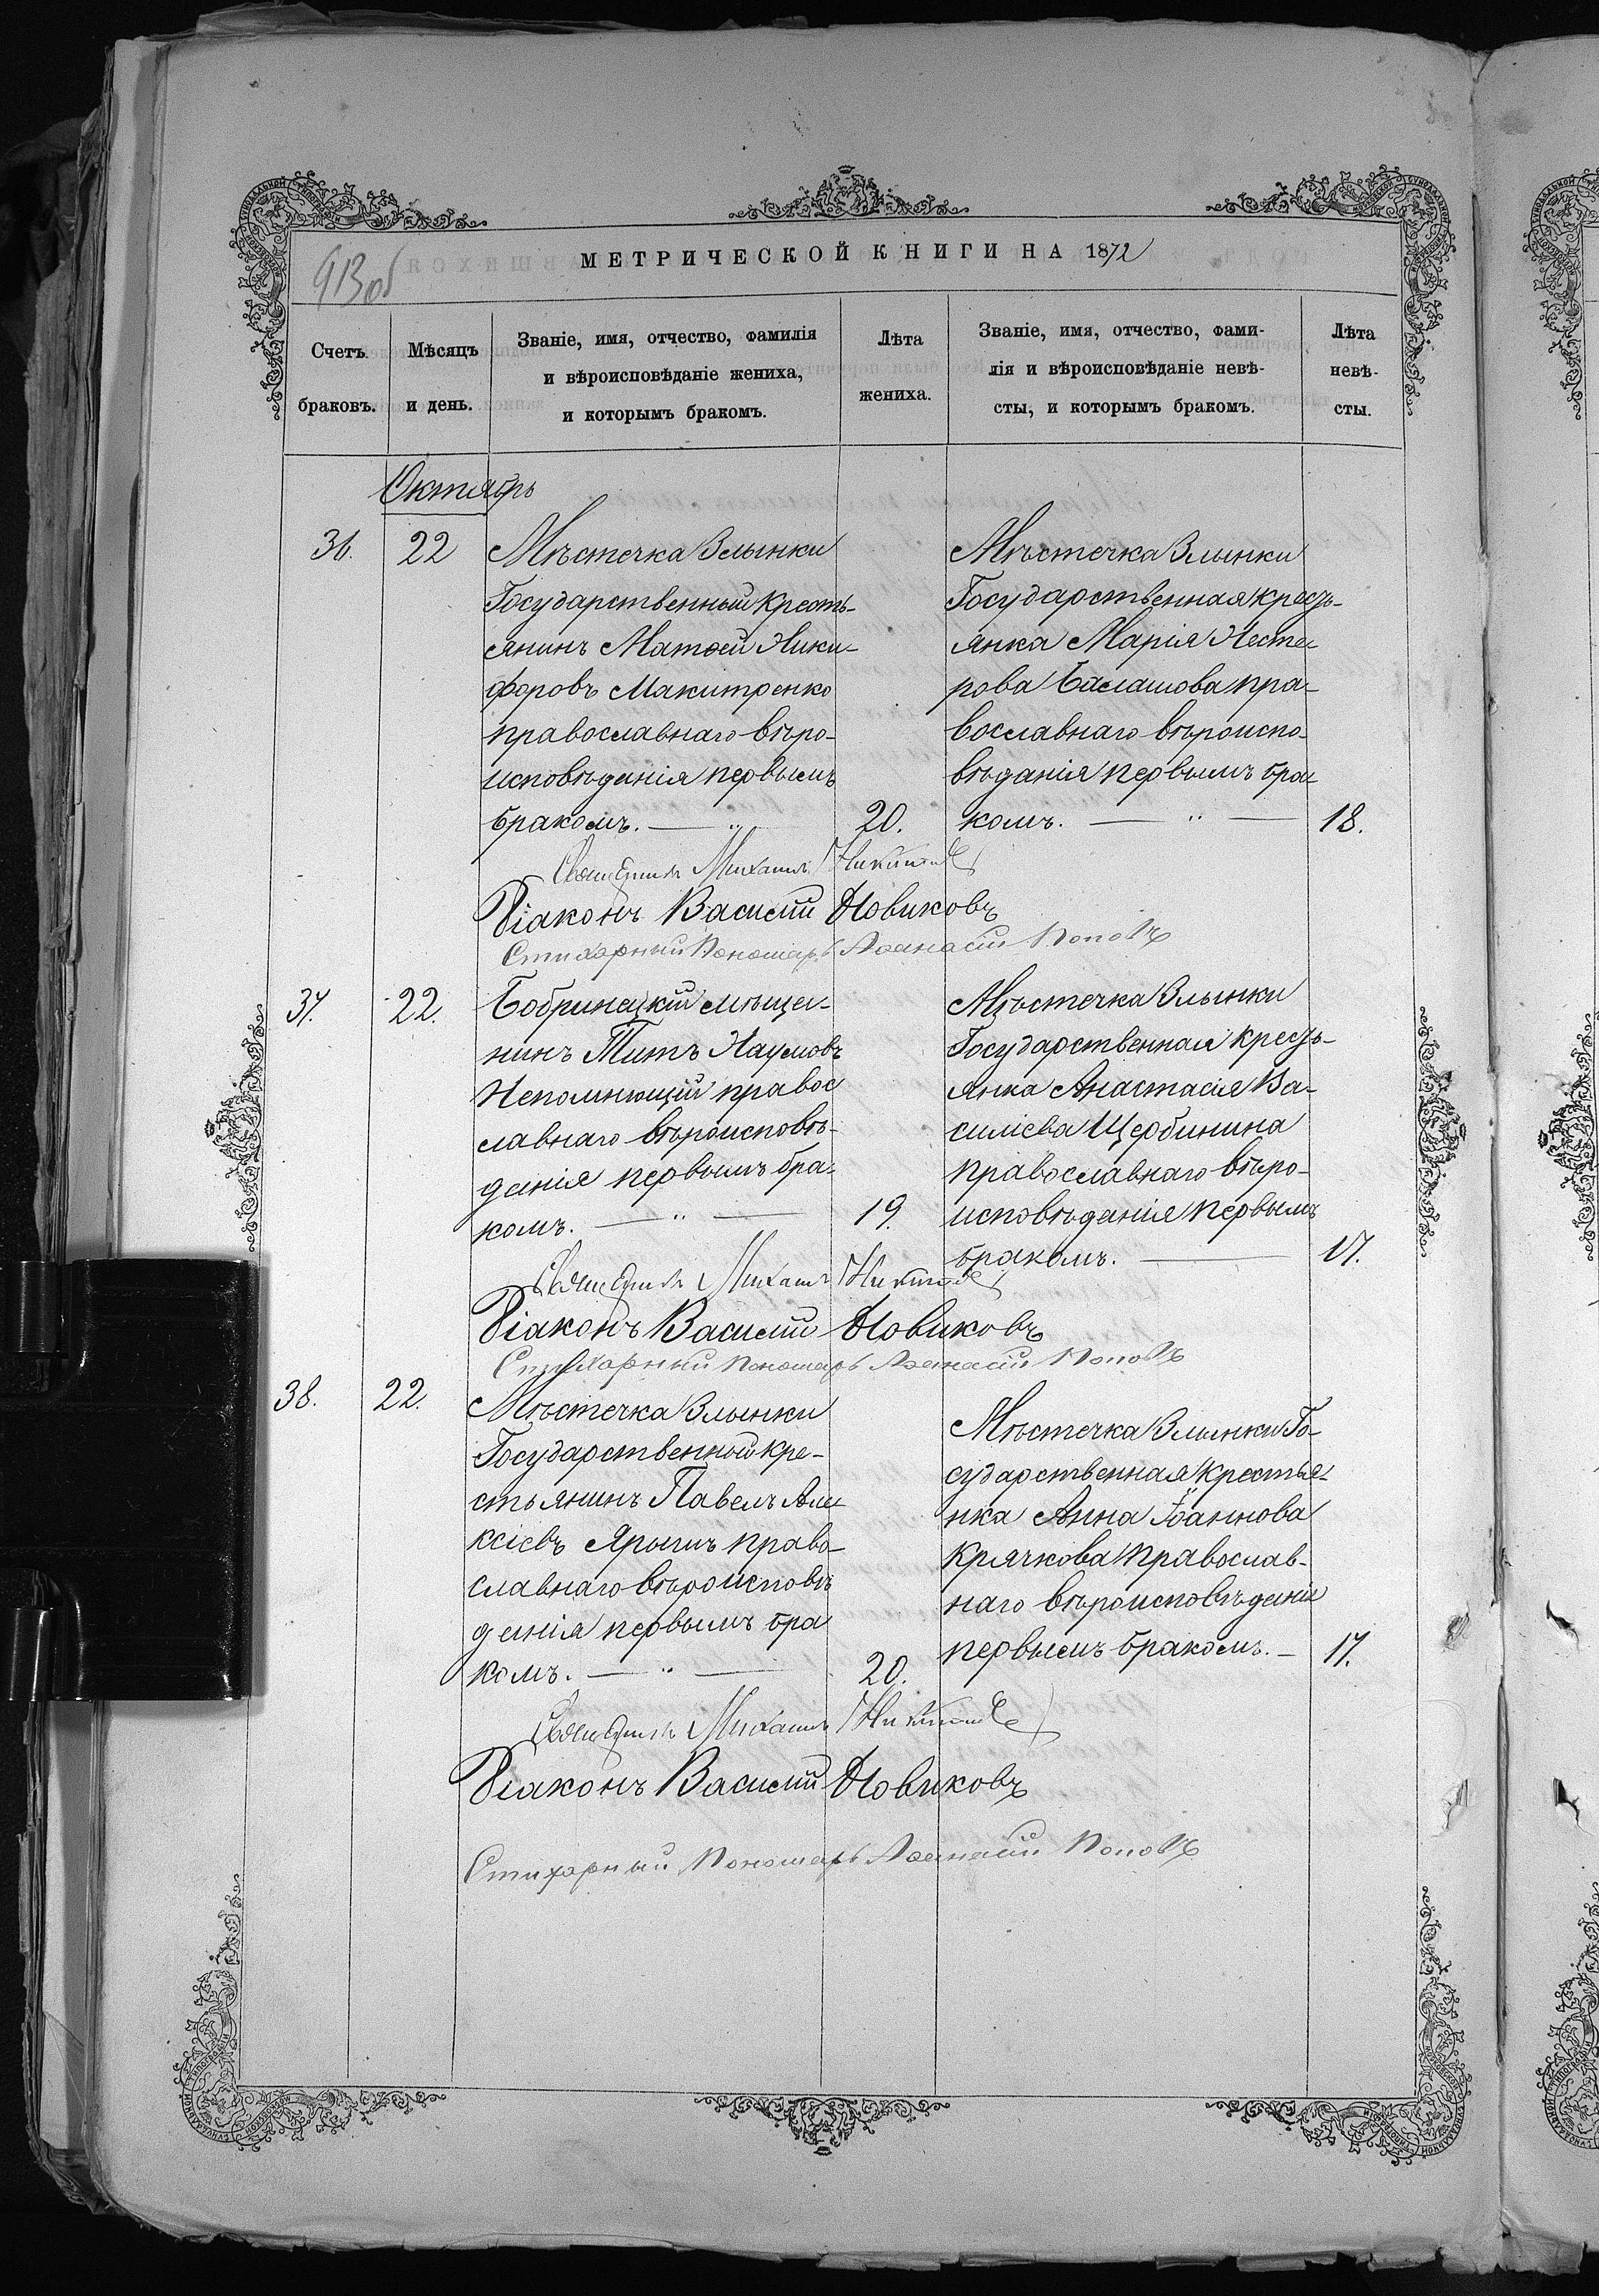 913об
МЕТРИЧЕСКОЙ КНИГИ НА 1872
Счетъ
браковъ.
Мѣсяцъ
и день.
Званіе, имя, отчество, фамилія
и вѣроисповѣданіе жениха,
и которымъ бракомъ.
Лѣта
жениха.
Званіе, имя, отчество, фами-
лія и вѣроисповѣданіе невѣ-
сты, и которымъ бракомъ.
Лѣта
невѣ-
сты.
Октябрь
36.
22
Мѣстечка Злынки
Государственный кресть-
янинъ Матѳей Ники-
форовъ Макитренко
православнаго вѣро-
исповѣданія первымъ
бракомъ. — " —
20.
Мѣстечка Злынки
Государственная кресть-
янка Марія Несте-
рова Балашова пра-
вославнаго вѣроиспо-
вѣданія первымъ бра-
комъ. — " —
18.
Священникъ Михаилъ
Діаконъ Василій Новиковъ
Стихарный Пономарь Аѳанасій Поповъ
37.
22.
Бобринецкій мѣща-
нинъ Титъ Наумовъ
Непомнющій правос
славнаго вѣроисповѣ-
данія первымъ бра-
комъ. — " —
19.
Мѣстечка Злынки
Государственная кресть-
янка Анастасія Ва-
силіева Щербинина
православнаго вѣро-
исповѣданія первымъ
бракомъ. —
17.
Священникъ Михаилъ
Діаконъ Василій Новиковъ
Стихарный Пономарь Аѳанасій Поповъ
38.
22.
Мѣстечка Злынки
Государственный кре-
стьянинъ Павелъ Але-
ксіевъ Ярышъ право-
славнаго вѣроисповѣ
данія первымъ бра
комъ. — " —
20.
Мѣстечка Злынки Го-
сударственная крестья-
нка Анна Іоаннова
Крячкова православ-
наго вѣроисповѣданія
первымъ бракомъ. —
17.
Священникъ Михаилъ
Діаконъ Василій Новиковъ
Стихарный Пономарь Аѳанасій Поповъ